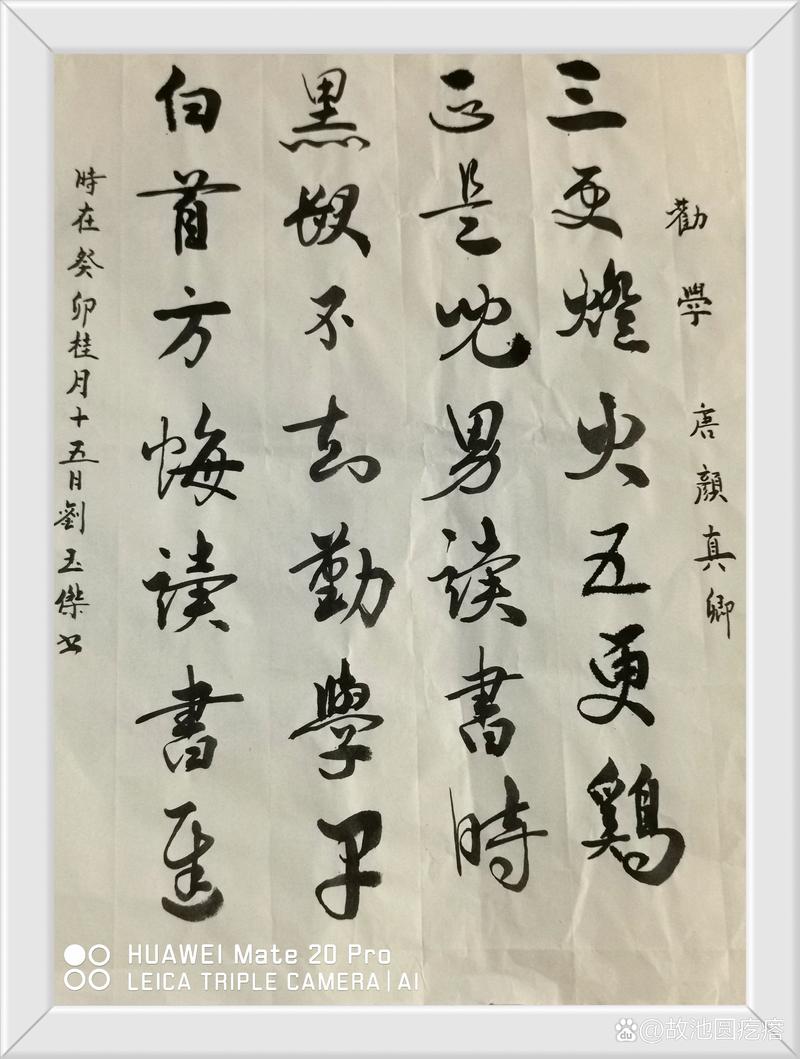 勸學 唐顏真卿
三更燈火五更鷄
正是兒男讀書時
黑髮不知勤學早
白首方悔讀書遲
時在癸卯桂月十五日劉玉傑书
HUAWEI Mate 20 Pro
LEICA TRIPLE CAMERA | AI
Bai du @故池圆疙瘩